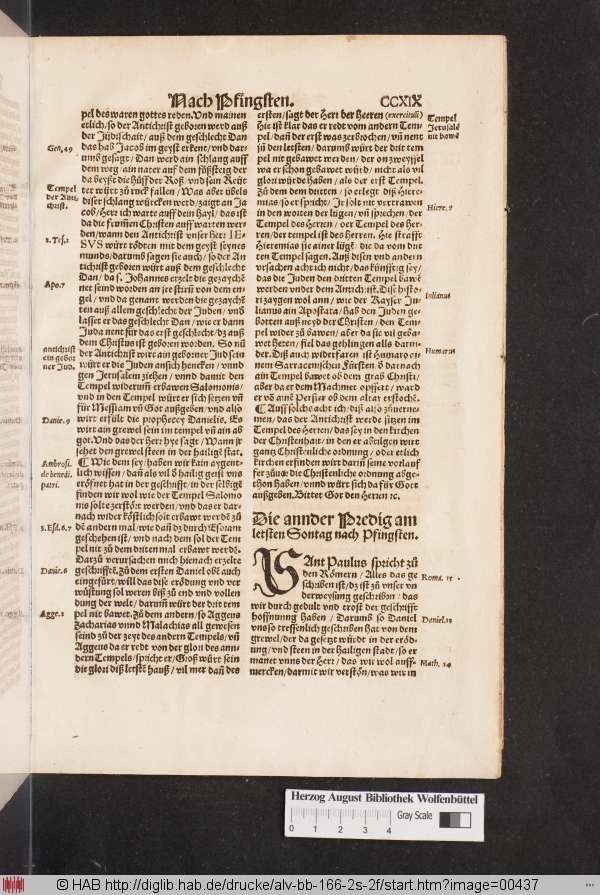 Nach Pfingsten.
CCXIX
pel des waren gottes reden. Vnd mainen
etlich / so der Antichrist geboren werd auß
der Jüdischait / auß dem geschlecht Dan
das hab Jacob im geyst erkent / vnd dar-
umb gesagt / Dan werd ain schlang auff
dem weg / ain nater auff dem fůßsteig der
da beyße die hůff der Roß / vnd sein Reüt
ter würt zů ruck fallen / Was aber übels
diser schlang würcken werd / zaigt an Ja
cob / Herr ich warte auff dein Hayl / das ist
da die frummen Christen auff warten wer
den / wann den Antichrist vnser Herr IE-
SVS würt tödten mit dem geyst seynes
munds / darumb sagen sie auch / so der An
tichrist geboren würt auß dem geschlecht
Dan / da S. Johannes erzelt die gezaychē
net seind worden an jer stirn von dem en-
gel / vnd da genant werden die gezaychē
ten auß allem geschlecht der Juden / vnd
lasset er das geschlecht Dan / wie er dann
Juda nent für das erst geschlecht / dz auß
dem Christus ist geboren worden. So nū
der Antichrist wirt ain geborner Jud sein
würt er die Juden an sich hencken / vnnd
gen Jerusalem ziehen / vnnd damit den
Tempel widerumb erbawen Salomonis /
vnd in den Tempel würt er sich setzen vn̄
für Messiam vn̄ Got außgeben / vnd also
wirt erfült die prophecey Danielis. Es
wirt ain grewel sein im tempel vn̄ ain ab
got. Vnd das der Herr hye sagt / Wann jr
sehet den grewel steen in der hailigē stat.
¶ Wie dem sey / haben wir kain aygent-
lich wissen / dan̄ als vil d hailig geist vns
eröfnet hat in der geschrifft / in der selbigē
finden wir wol wie der Tempel Salomo
nis solte zerstört werden / vnd das er dar-
nach wider köstlich solt erbawt werdē zū
dē andern mal / wie dan̄ dz durch Esdram
geschehen ist / vnd nach dem sol der Tem
pel nit zů dem dritten mal erbawt werdē.
Darzů verursachen mich hienach erzelte
geschrifftē. Zů dem ersten Daniel obē auch
eingefürt / will das dise erödung vnd ver
wüstung sol weren biß zů end vnd vollen
dung der welt / darum̄ würt der drit tem
pel nit bawet. Zů dem andern / so Aggeus
Zacharias vnnd Malachias all gewesen
seind zů der zeyt des andern Tempels / vn̄
Aggeus da er redt von der glori des ann-
dern Tempels / spricht er / Groß würt sein
die glori diß letstē hauß / vil mer dan̄ des
Gen. 49
Tempel
der Anti-
christ.
2. Tes. 2
Apo. 7
antichrist
ein gebor
ner Jud.
Danie. 9
Ambrosi.
de benedi.
patri.
3. Esd. 6. 7
Danie. 6
Agge. 2
ersten / sagt der Herr der Heeren (exercituū)
Hie ist klar das er redt vom andern Tem-
pel / dan̄ der erst was zerbrochen / vn̄ nent
jn den letsten / darumb würt der drit tem
pel nit gebawet werden / der on zweyffel
wa er schon gebawet würd / nicht als vil
glori würde haben / als der erst Tempel.
Zů dem dem dritten / so erlegt diß Hiere-
mias / so er spricht / Jr solt nit vertrawen
in den worten der lügen / vn̄ sprechen / der
Tempel des Herren / der Tempel des Her-
ren / der tempel ist des Herren. Hie strafft
Hieremias sie ainer lügē / die da vom drit
ten Tempel sagen. Auß disen vnd andern
vrsachen acht ich nicht / das künfftig sey /
das die Juden den dritten Tempel bawē
werden vnder dem Antichrist. Dise histo-
ri zaygen wol ann / wie der Kayser Ju-
lianus ain Apostata / hab den Juden ge-
botten auß neyd der Christen / den Tem-
pel wider zů bawen / aber da sie vil geba-
wet heten / fiel das gehlingen alls darni-
der. Diß auch widerfaren ist Humaro ei-
nem Sarracenischen Fürsten d darnach
ain Tempel bawet ob dem grab Christi /
aber da er dem Machmet opffert / ward
er vō aine Persier ob dem altar erstochē.
¶ Auff solchs acht ich / diß also zůuerne-
men / das der Antichrist werde sitzen im
Tempel des Herren / das sey in den kirchen
der Christenhait / in den er abtilgen wirt
gantz Christenliche ordnung / oder etlich
kirchen erfinden wirt darin seine vorlauf
fer zůuor die Christenliche ordnung abge-
thon haben / vnnd würt sich da für Got
außgeben. Bittet Got den Herren ꝛc.
Die annder Predig am
letsten Sontag nach Pfingsten.
SAnt Paulus spricht zů
den Römern / Alles das ge
schriben ist / dz ist zů vnser vn
derweysung geschriben / das
wir durch gedult vnd trost der geschrifft
hoffnung haben / Darumb so Daniel
vns so treffenlich geschriben hat von dem
grewel / der da gesetzt würdt in der eröd-
ung / vnd steen in der hailigen stadt / so er
manet vnns der Herr / das wir wol auff-
mercken / damit wir verston / was wir in
Tempel
Jerusalē
nit bawē
Hiere. 7
Iulianus
Humarus
Roma. 15
Daniel. 12
Math. 24
Herzog August Bibliothek Wolfenbüttel
0 1 2 3 4
Gray Scale
© HAB http://diglib.hab.de/drucke/alv-bb-166-2s-2f/start.htm?image=00437